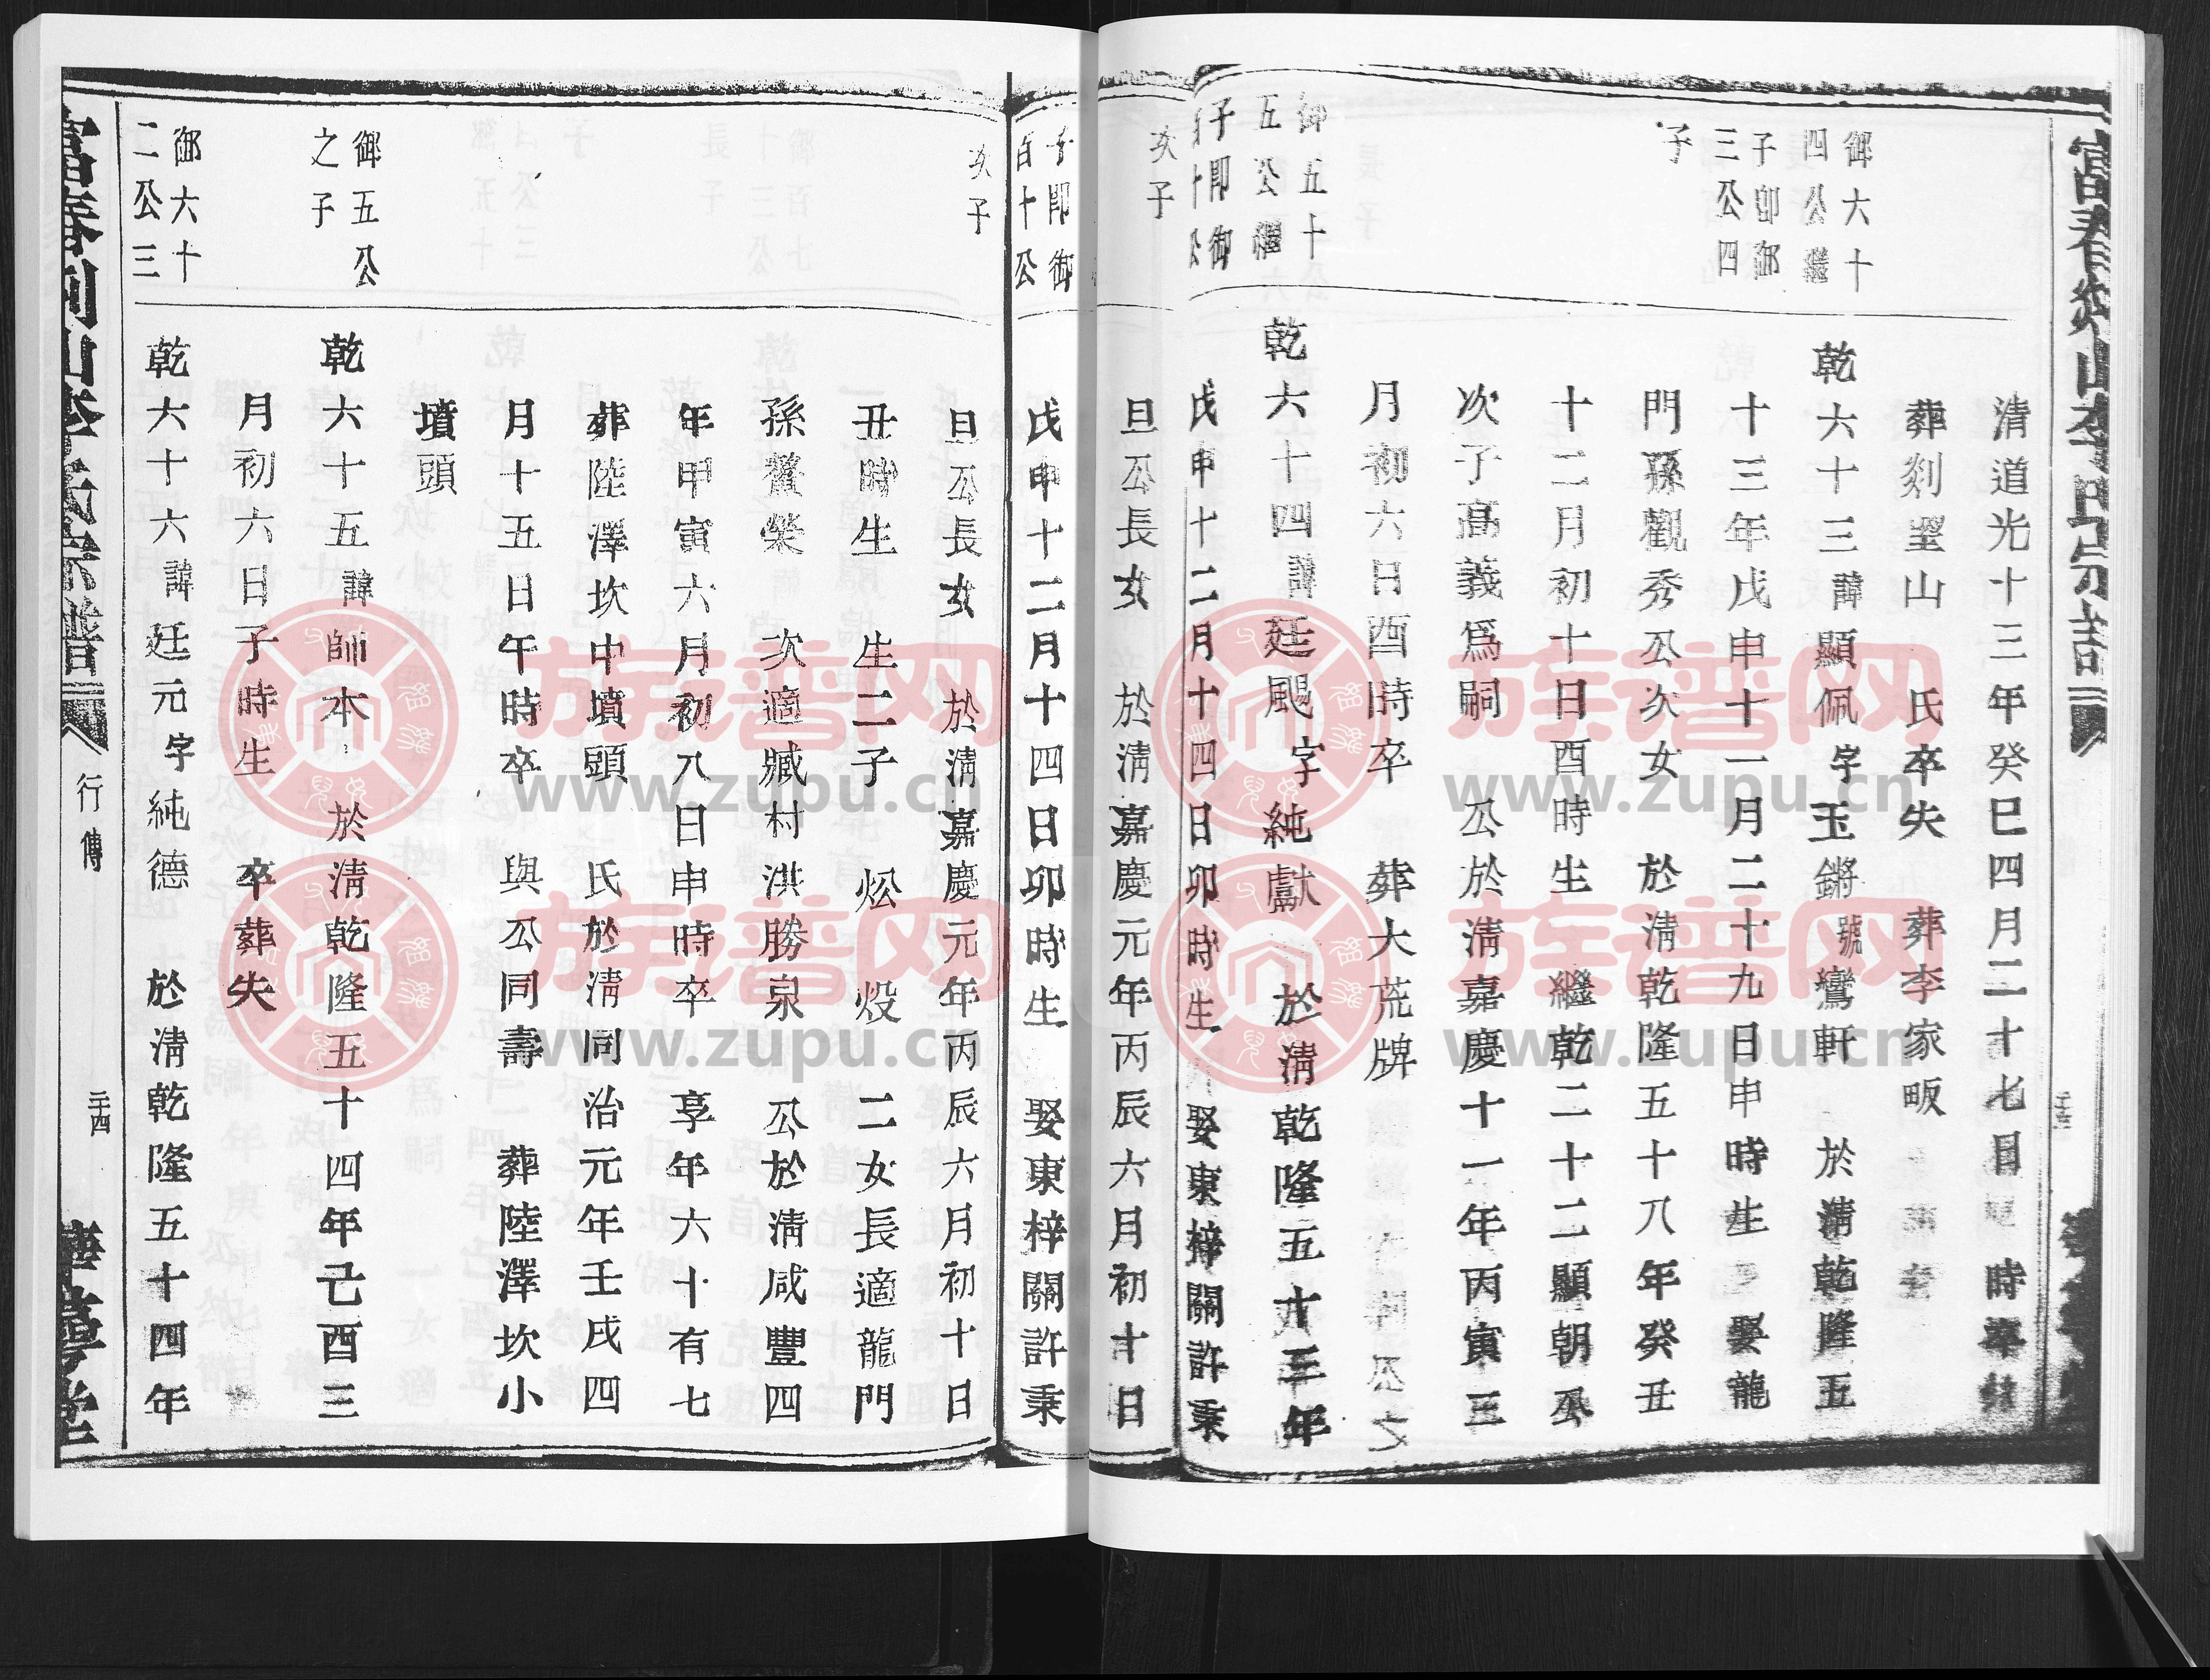 富春剡山李氏宗譜
清道光十三年癸巳四月二十七日 時卒
葬剡望山 氏卒失 葬李家畈
御六十四公繼子即御三公四子
乾六十三諱顯佩字玉鏘號鸞軒 於清乾隆五
十三年戊申十一月二十九日申時生 娶龍
門孫觀秀公次女 於清乾隆五十八年癸丑
十二月初十日酉時生 繼乾二十二顯朝公
次子高義為嗣 公於清嘉慶十一年丙寅三
月初六日酉時卒 葬大荒牌
御五十五公繼子即御百十公次子
乾六十四諱廷颺字純獻 於清乾隆五十三年
戊申十二月十四日卯時生 娶東梓關許秉
旦公長女 於清嘉慶元年丙辰六月初十日
子即御百十公次子
戊申十二月十四日卯時生 娶東梓關許秉
旦公長女 於清嘉慶元年丙辰六月初十日
丑時生 生二子 炂 炈 二女長適龍門
孫鰲榮 次適臧村洪勝泉 公於清咸豐四
年甲寅六月初八日申時卒 享年六十有七
葬陸澤坎中墳頭 氏於清同治元年壬戌四
月十五日午時卒 與公同壽 葬陸澤坎小
墳頭
御五公之子
乾六十五諱師本 於清乾隆五十四年己酉三
月初六日子時生 卒葬失
御六十二公三
乾六十六諱廷元字純德 於清乾隆五十四年
富春剡山李氏宗譜
行傳
二十四
華萼堂
族谱网
www.zupu.cn
族谱网
www.zupu.cn
族谱网
www.zupu.cn
族谱网
www.zupu.cn